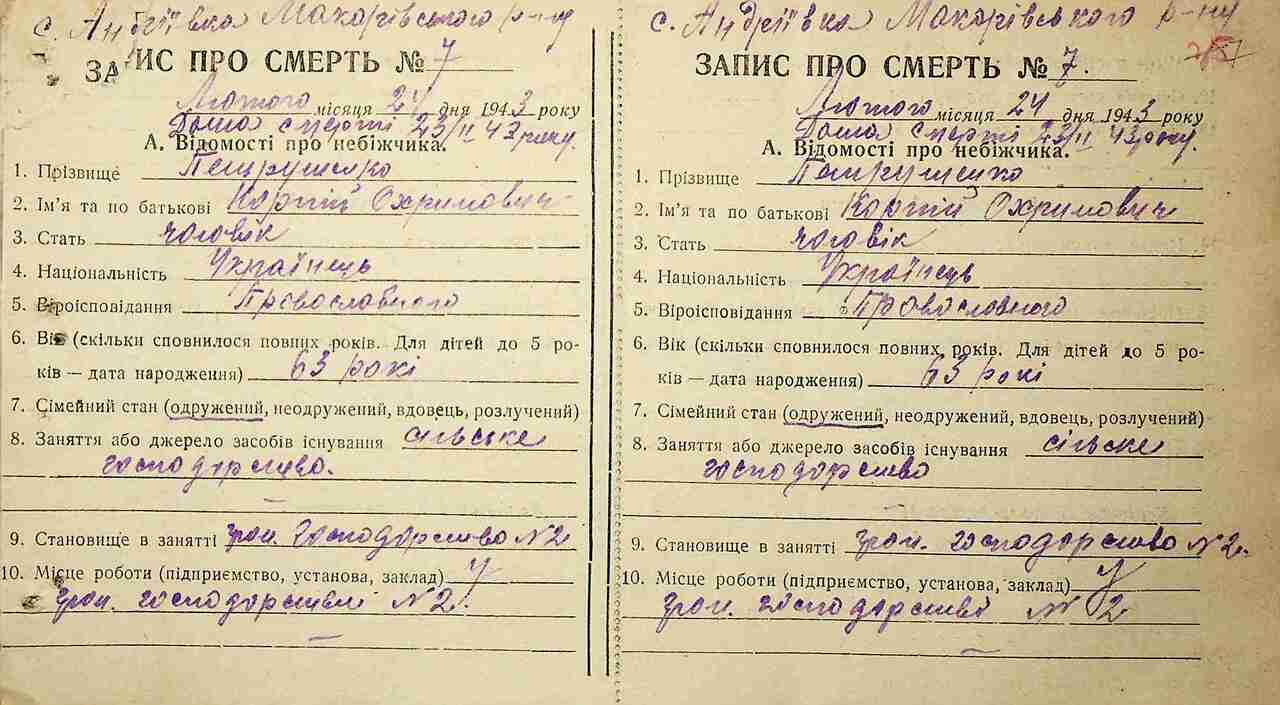 с. Андріївка Макарівського р-ну
ЗАПИС ПРО СМЕРТЬ № 7
Лютого місяця 24 дня 1943 року
Дата смерті 23/II 43 року.
А. Відомості про небіжчика.
1. Прізвище Петрушенко
2. Ім'я та по батькові Корній Охримович
3. Стать чоговік
4. Національність Українець
5. Віроісповідання Провославного
6. Вік (скільки сповнилося повних років. Для дітей до 5 ро-
ків — дата народження) 63 рокі
7. Сімейний стан (одружений, неодружений, вдовець, розлучений)
8. Заняття або джерело засобів існування сільське
господарство.
9. Становище в занятті гром. господарство N2
10. Місце роботи (підприємство, установа, заклад) У
гром. господарстві N2.
с. Андріївка Макарівського р-ну
ЗАПИС ПРО СМЕРТЬ № 7.
Лютого місяця 24 дня 1943 року
Дата смерті 23/II 43 року.
А. Відомості про небіжчика.
1. Прізвище Петрушенко
2. Ім'я та по батькові Корній Охримович
3. Стать чоговік
4. Національність Українець
5. Віроісповідання Провославного
6. Вік (скільки сповнилося повних років. Для дітей до 5 ро-
ків — дата народження) 63 рокі
7. Сімейний стан (одружений, неодружений, вдовець, розлучений)
8. Заняття або джерело засобів існування сільське
господарство
9. Становище в занятті гром. господарство N2.
10. Місце роботи (підприємство, установа, заклад) У
гром. господарстві N2